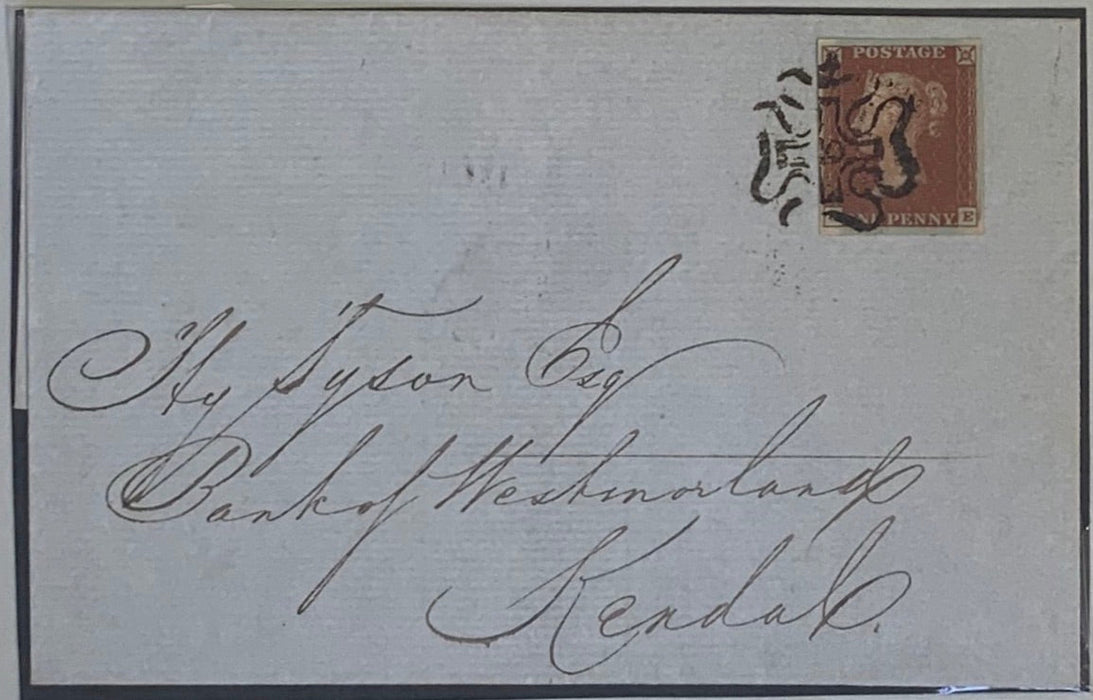 POSTAGE
ONE PENNY E
Hy Tyson Esq
Bank of Westmorland
Kendal.